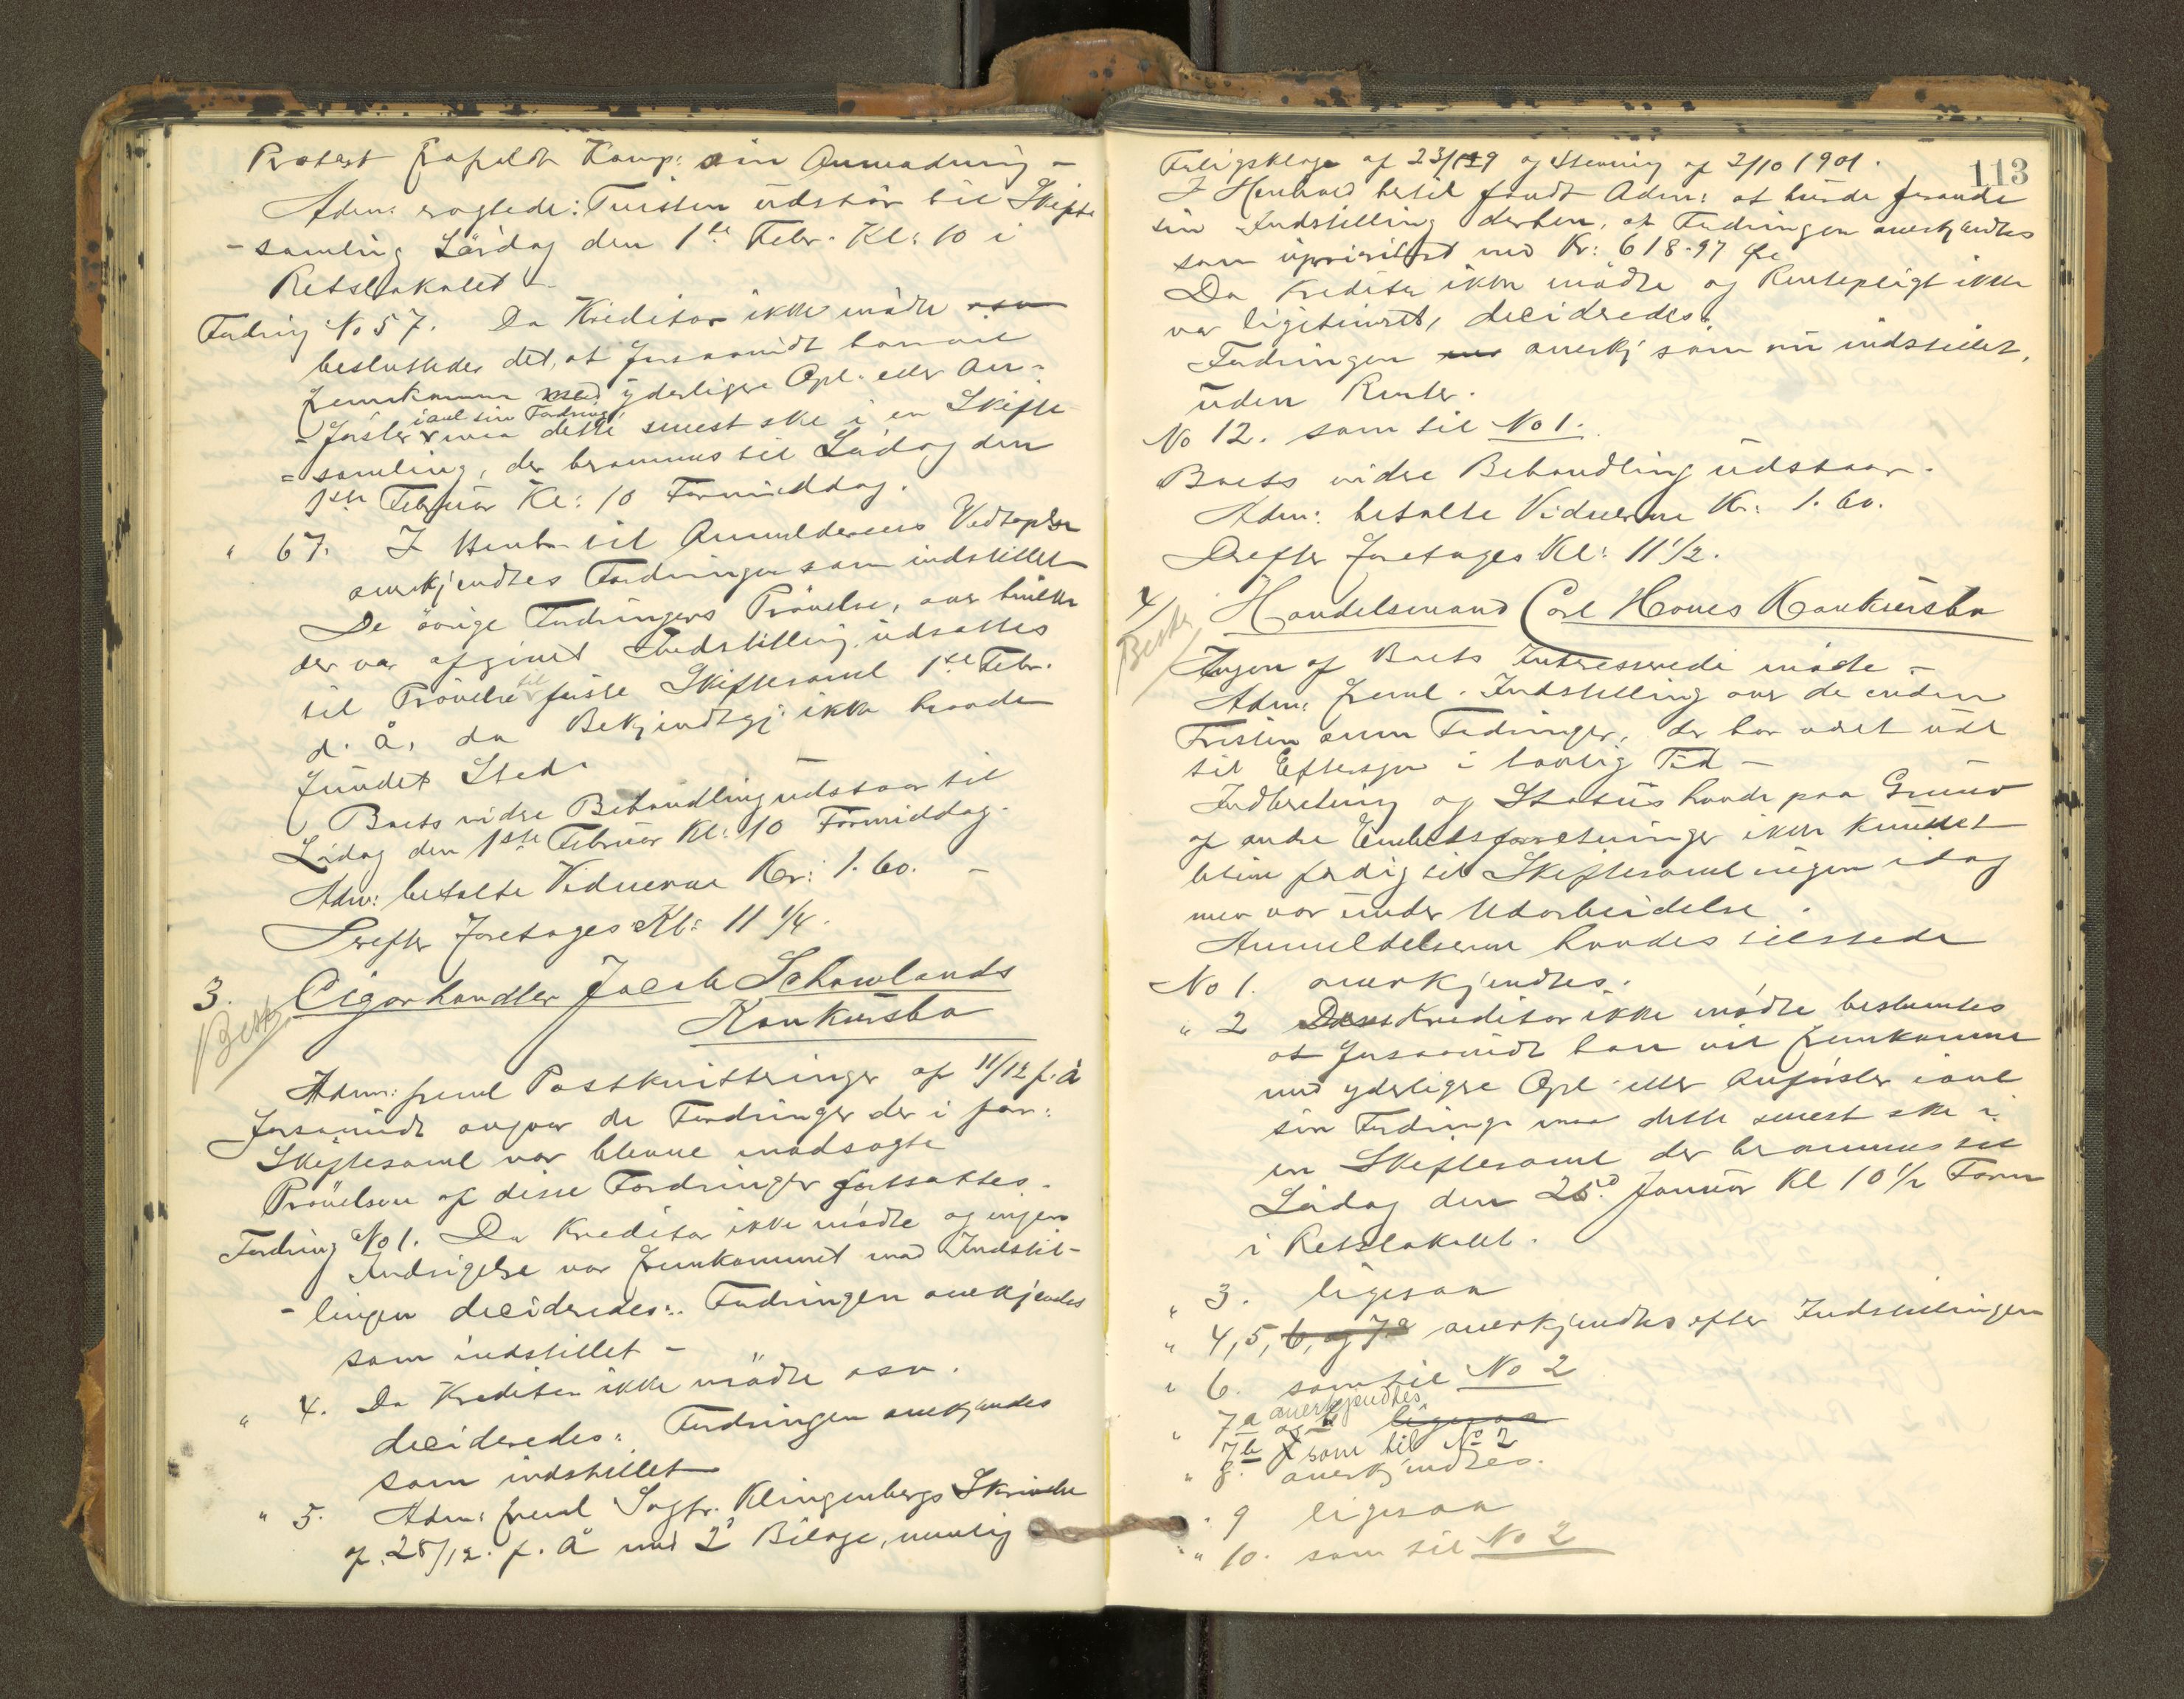 Protest frafaldt Komp: sin Anmodning -
Adm: eragtede: Tvisten udstår til Skifte
- samling Lørdag den 1ste Febr. Kl: 10 i
Retslokalet -
Fordring No 57. Da Kreditor ikke mødte osv
besluttedes det, at forsaavidt han vil
fremkomme med yderligere Opl. eller An-
- førsler ianl sin Fordring, maa dette senest ske i en Skifte
= samling, der berammes til Lørdag den
1ste Februar Kl: 10 Formiddag.
" 67. I Henh. til Anmelderens Vedtagelse
anerkjendtes Fordringen som indstillet
De øvrige Fordringers Prøvelse, over hvilke
der var afgivet Indstilling udsattes
til Prøvelse til første Skiftesaml 1ste Febr.
d. Å. da Bekjendtgj. ikke havde
fundet Sted.
Boets vidre Behandling udstaar til
Lørdag den 1ste Februar Kl: 10 Formiddag.
Adm: betalte Vidnerne Kr: 1.60. -
Derefter foretoges Kl: 11 1/4.
3. Cigarhandler Jacob Schowlands
Konkursbo
Adm: freml Postkvitteringer af 11/12 f. Å
forsaavidt angaar de Fordringer der i for:
Skiftesaml var blevne modsagte
Prøvelsen af disse Fordringer fortsattes.
Fordring No 1. Da Kreditor ikke mødte og ingen
Indsigelse var fremkommet mod Indstil-
- lingen decideredes: Fordringen anerkjendes
som indstillet -
" 4. Da Kreditor ikke mødte osv.
decideredes: Fordringen anerkjendes
som indstillet
" 5. Adm: freml Sagf. Klingenbergs Skrivelse
af 28/12. f. Å med 2 Bilage, nemlig
113
Forligsklage af 23/9 og Stevning af 2/10 1901.
I Henhold hertil fandt Adm: at burde forandre
sin Indstilling derhen, at Fordringen anerkjendtes
som uprioritert med Kr: 618.97 Øre
Da Kreditor ikke mødte og Rentepligt ikke
var ligitimeret, decideredes:
Fordringen anerkj som nu indstillet,
uden Renter.
No 12. som til No 1.
Boets vidre Behandling udstaar.
Adm: betalte Vidnerne Kr: 1.60.
Derefter foretoges Kl: 11 1/2.
4/ Handelsmand Carl Hoves Konkursbo
Ingen af Boets Interesserede mødte -
Adm: freml. Indstilling over de inden
Fristen anm Fordringer, der har været udl
til Eftersyn i lovlig Tid -
Indberetning og Status havde paa Grund
af andre Embedsforretninger ikke kunnet
blive færdig til Skiftesamlingen idag
men var under Udarbeidelse.
Anmeldelserne havdes tilstede
No 1. anerkjendtes.
" 2 Kreditor ikke mødte bestemtes
at forsaavidt han vil fremkomme
med yderligere Opl eller Anførsler ianl
sin Fordring maa dette senest ske i
en Skiftesaml der berammes til
Lørdag den 25de Januar Kl 10 1/2 Form
i Retslokalet.
" 3. ligesaa
" 4, 5, 6, og 7a anerkjendtes efter Indstillingen
" 6. som til No 2
" 7a anerkjendtes
og b ligesaa
7b som til No 2
" 8. anerkjendtes.
" 9 ligesaa
" 10. som til No 2